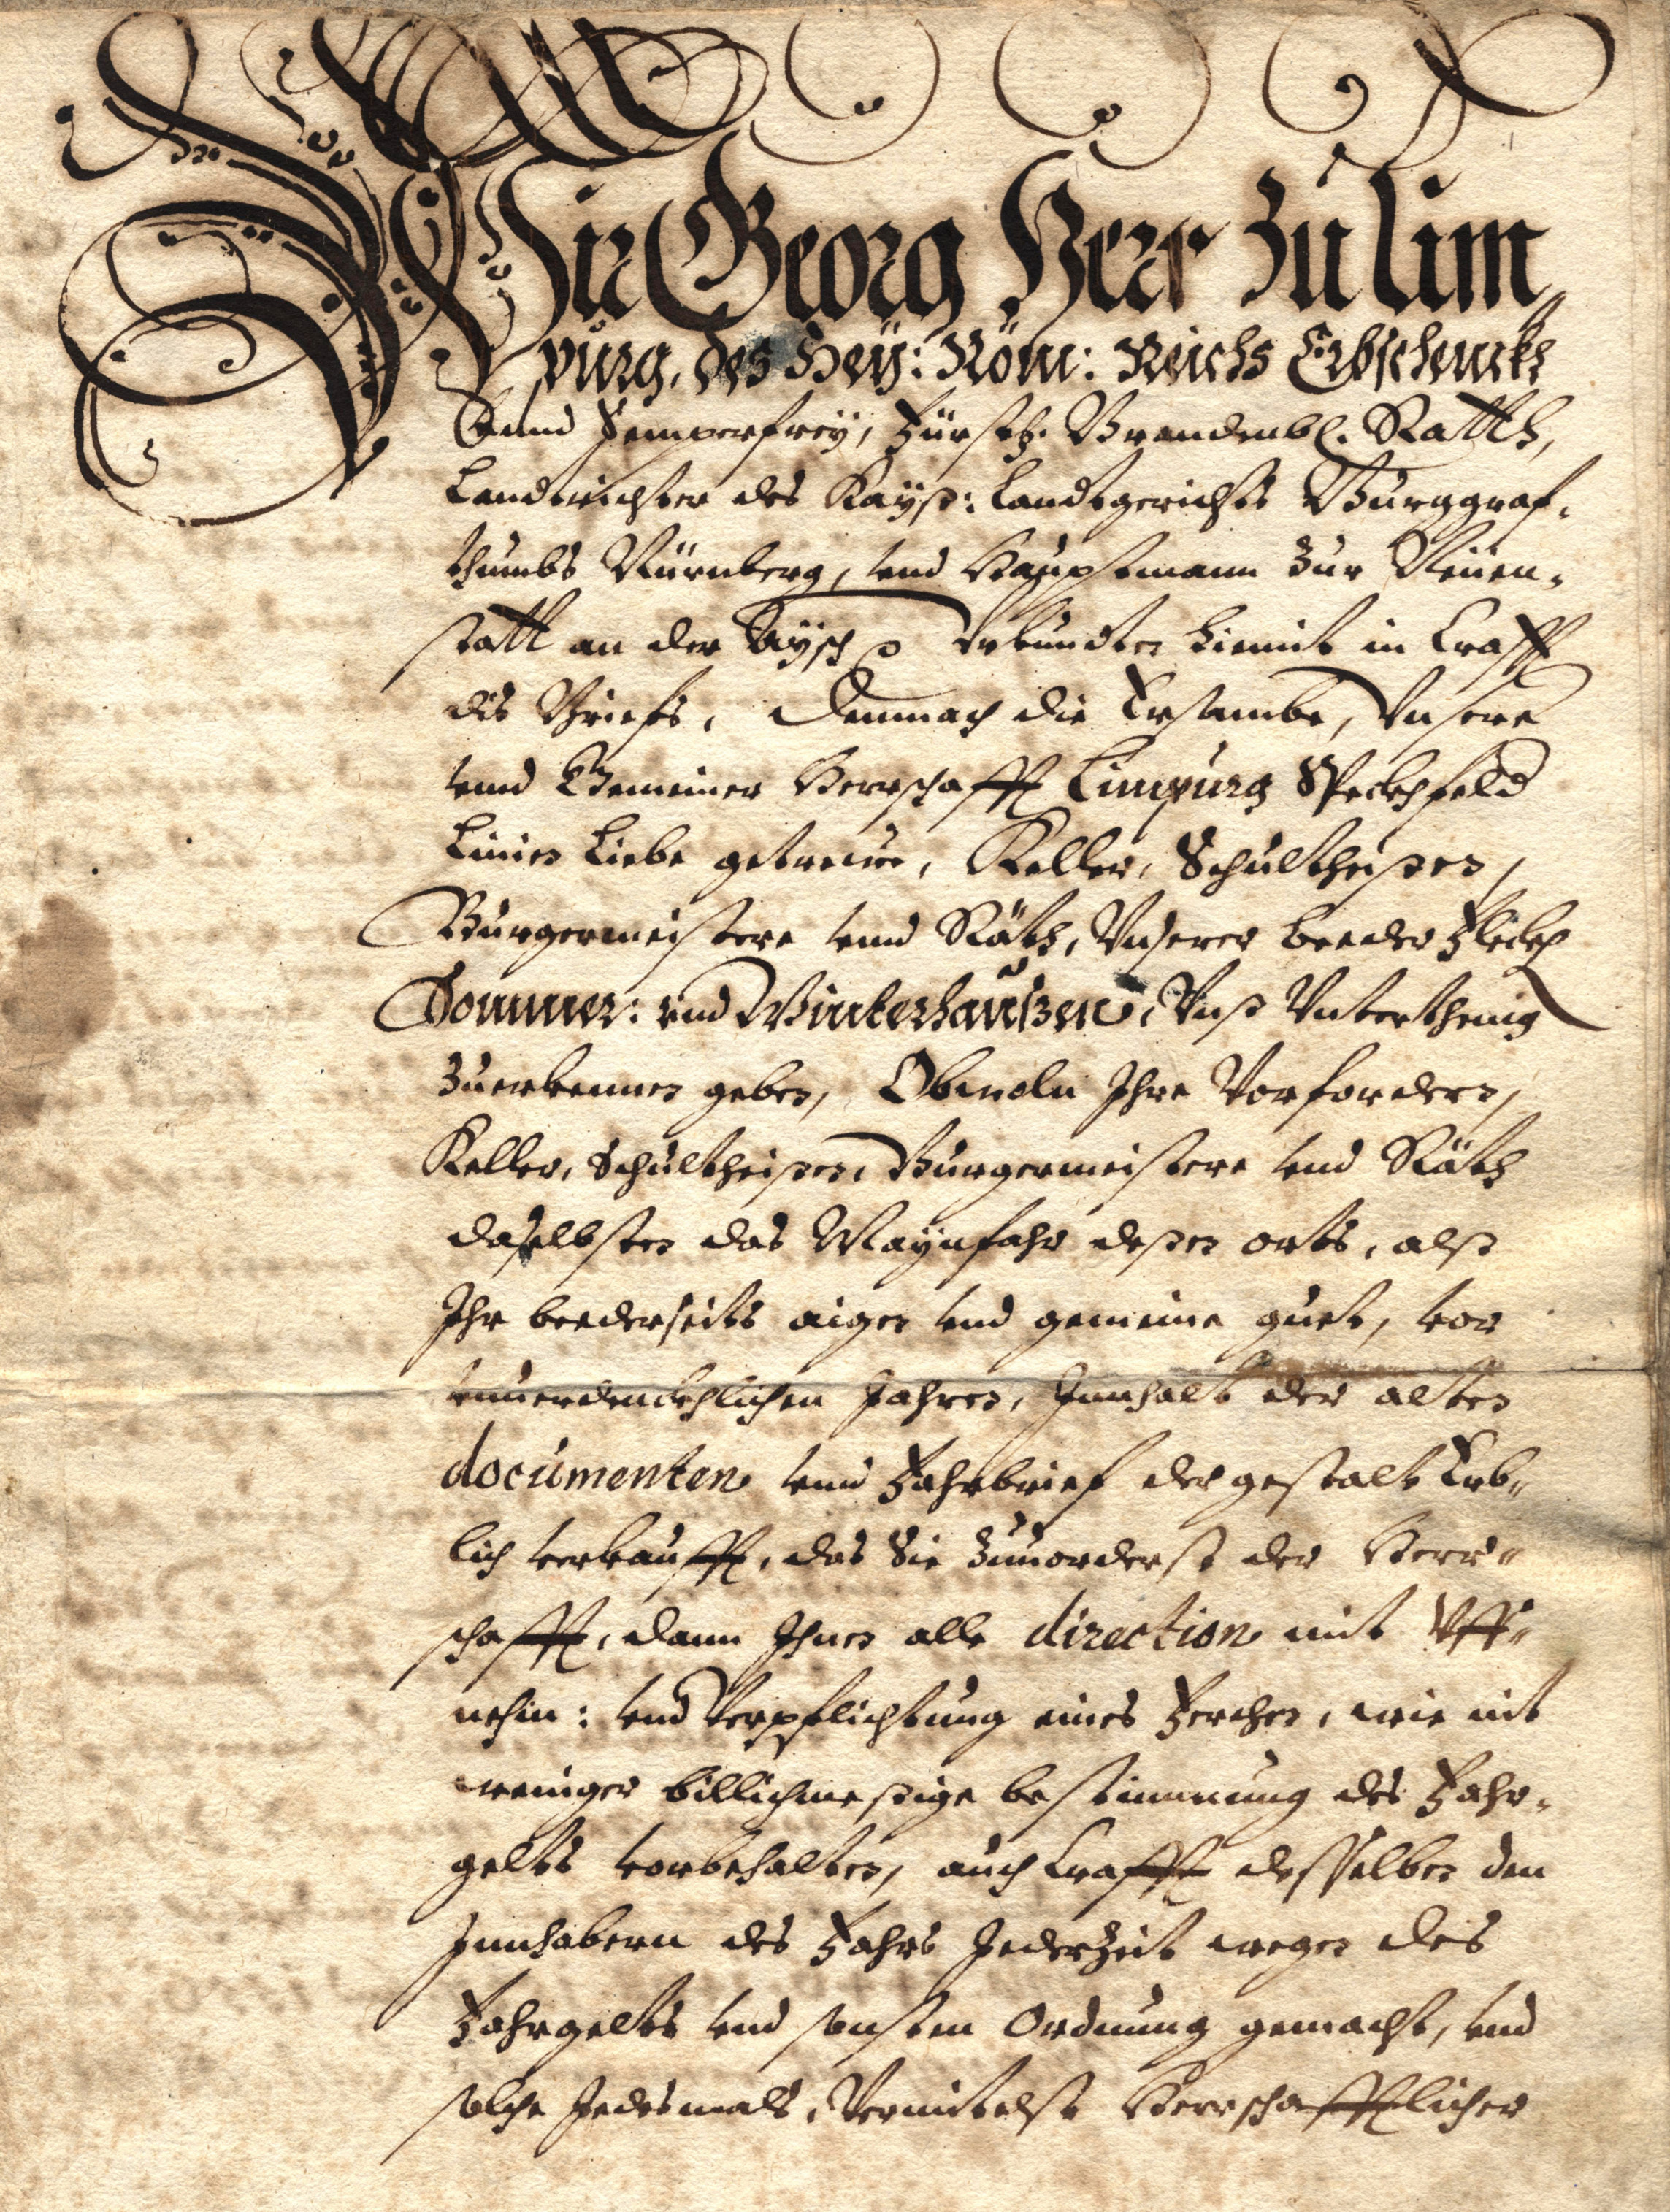 Wir Georg Herr zu Lim„
purg, des Hey: Röm: Reichs Erbschenckh
vnnd Semperfrey, Fürstl. Brandenb. Rath,
Landtrichter des Kayß: Landtgerichts Burggraf„
thumbs Nürnberg, vnd Hauptmann zur Neuen„
statt an der Aysch Vrkundten hiemit in Crafft
dis Briefs, Demnach die Ersambe, Vnsere
vnnd Gemeiner Herrschafft Limpurg Speckhfeld
Linien Liebe getreue, Keller, Schultheißen,
Burgermeistere vnnd Räth, Vnserer beeder Fleckh
Sommer: vnd Winterhaußen, Vnß Vnterthenig
zuerkennen geben, Obwoln Ihre Vorfordern,
Keller, Schultheißen, Burgermeistere vnd Räth
daselbsten das Maynfahr deßen orts, alß
Ihr beederseits aigen vnd gemeine guet, vor
vnuerdenckhlichen Jahren, Innhalt der alten
documenten vnd Fahrbrief der gestalt Erb„
lich verkaufft, das Sie zuuorderst der Herr„
schafft, dann Ihnen alle direction mit Vff„
nehm: vnd Verpflichtung eines Ferchen, wie nit
weniger billichmeßige bestimmung des Fahr„
gelts vorbehalten, auch Crafft desselben den
Innhabern des Fahrs Jederzeit wegen des
Fahrgelts vnd sonsten Ordnung gemacht, vnd
solche Jedesmals, Vermitelst Herrschafftlicher